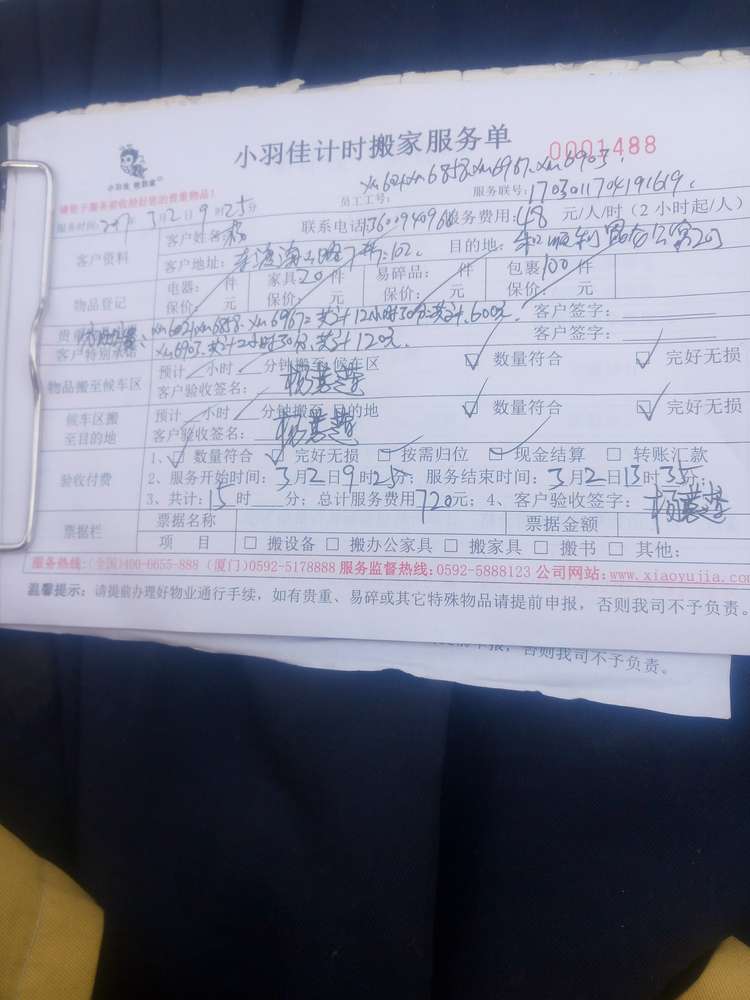 小羽佳计时搬家服务单
0001488
小羽佳 搬到家
请您于服务前收拾好您的贵重物品!
员工工号: xm6021xm6848.xm6967.xm6903.
服务联号: 170301170419 1619.
服务时间: 2017年3月2日9时25分
客户资料
客户姓名: 杨
联系电话:
服务费用: 48 元/人/时(2小时起/人)
客户地址:
目的地:
物品登记
电器: 件 家具20件 易碎品: 件 包裹100件
保价: 元 保价: 元 保价: 元 保价: 元
xm6021xm6848.xm6967=共计12小时30分=共计.600元.
客户签字:
客户特别承诺
xm6903.共计2小时30分.共计120元.
客户签字:
物品搬至候车区
预计 小时 分钟搬至候车区
☑ 数量符合 ☑ 完好无损
客户验收签名:
候车区搬至目的地
预计 小时 分钟搬至目的地
☑ 数量符合 ☑ 完好无损
客户验收签名:
验收付费
1、☑ 数量符合 ☑ 完好无损 ☑ 按需归位 ☑ 现金结算 □ 转账汇款
2、服务开始时间: 3月2日9时25分; 服务结束时间: 3月2日13时35分;
3、共计: 15时 分; 总计服务费用720元; 4、客户验收签字:
票据栏
票据名称 票据金额
项 目 □ 搬设备 □ 搬办公家具 □ 搬家具 □ 搬书 □ 其他:
服务热线:(全国)400-6655-888 (厦门)0592-5178888 服务监督热线:0592-5888123 公司网站:www.xiaoyujia.com
温馨提示: 请提前办理好物业通行手续, 如有贵重、易碎或其它特殊物品请提前申报, 否则我司不予负责。
否则我司不予负责。